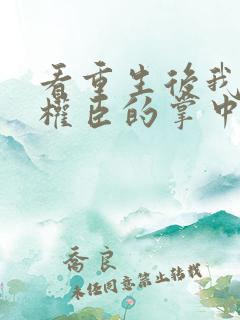 看重生後我
權臣的掌中
喬良
未經同意禁止轉載